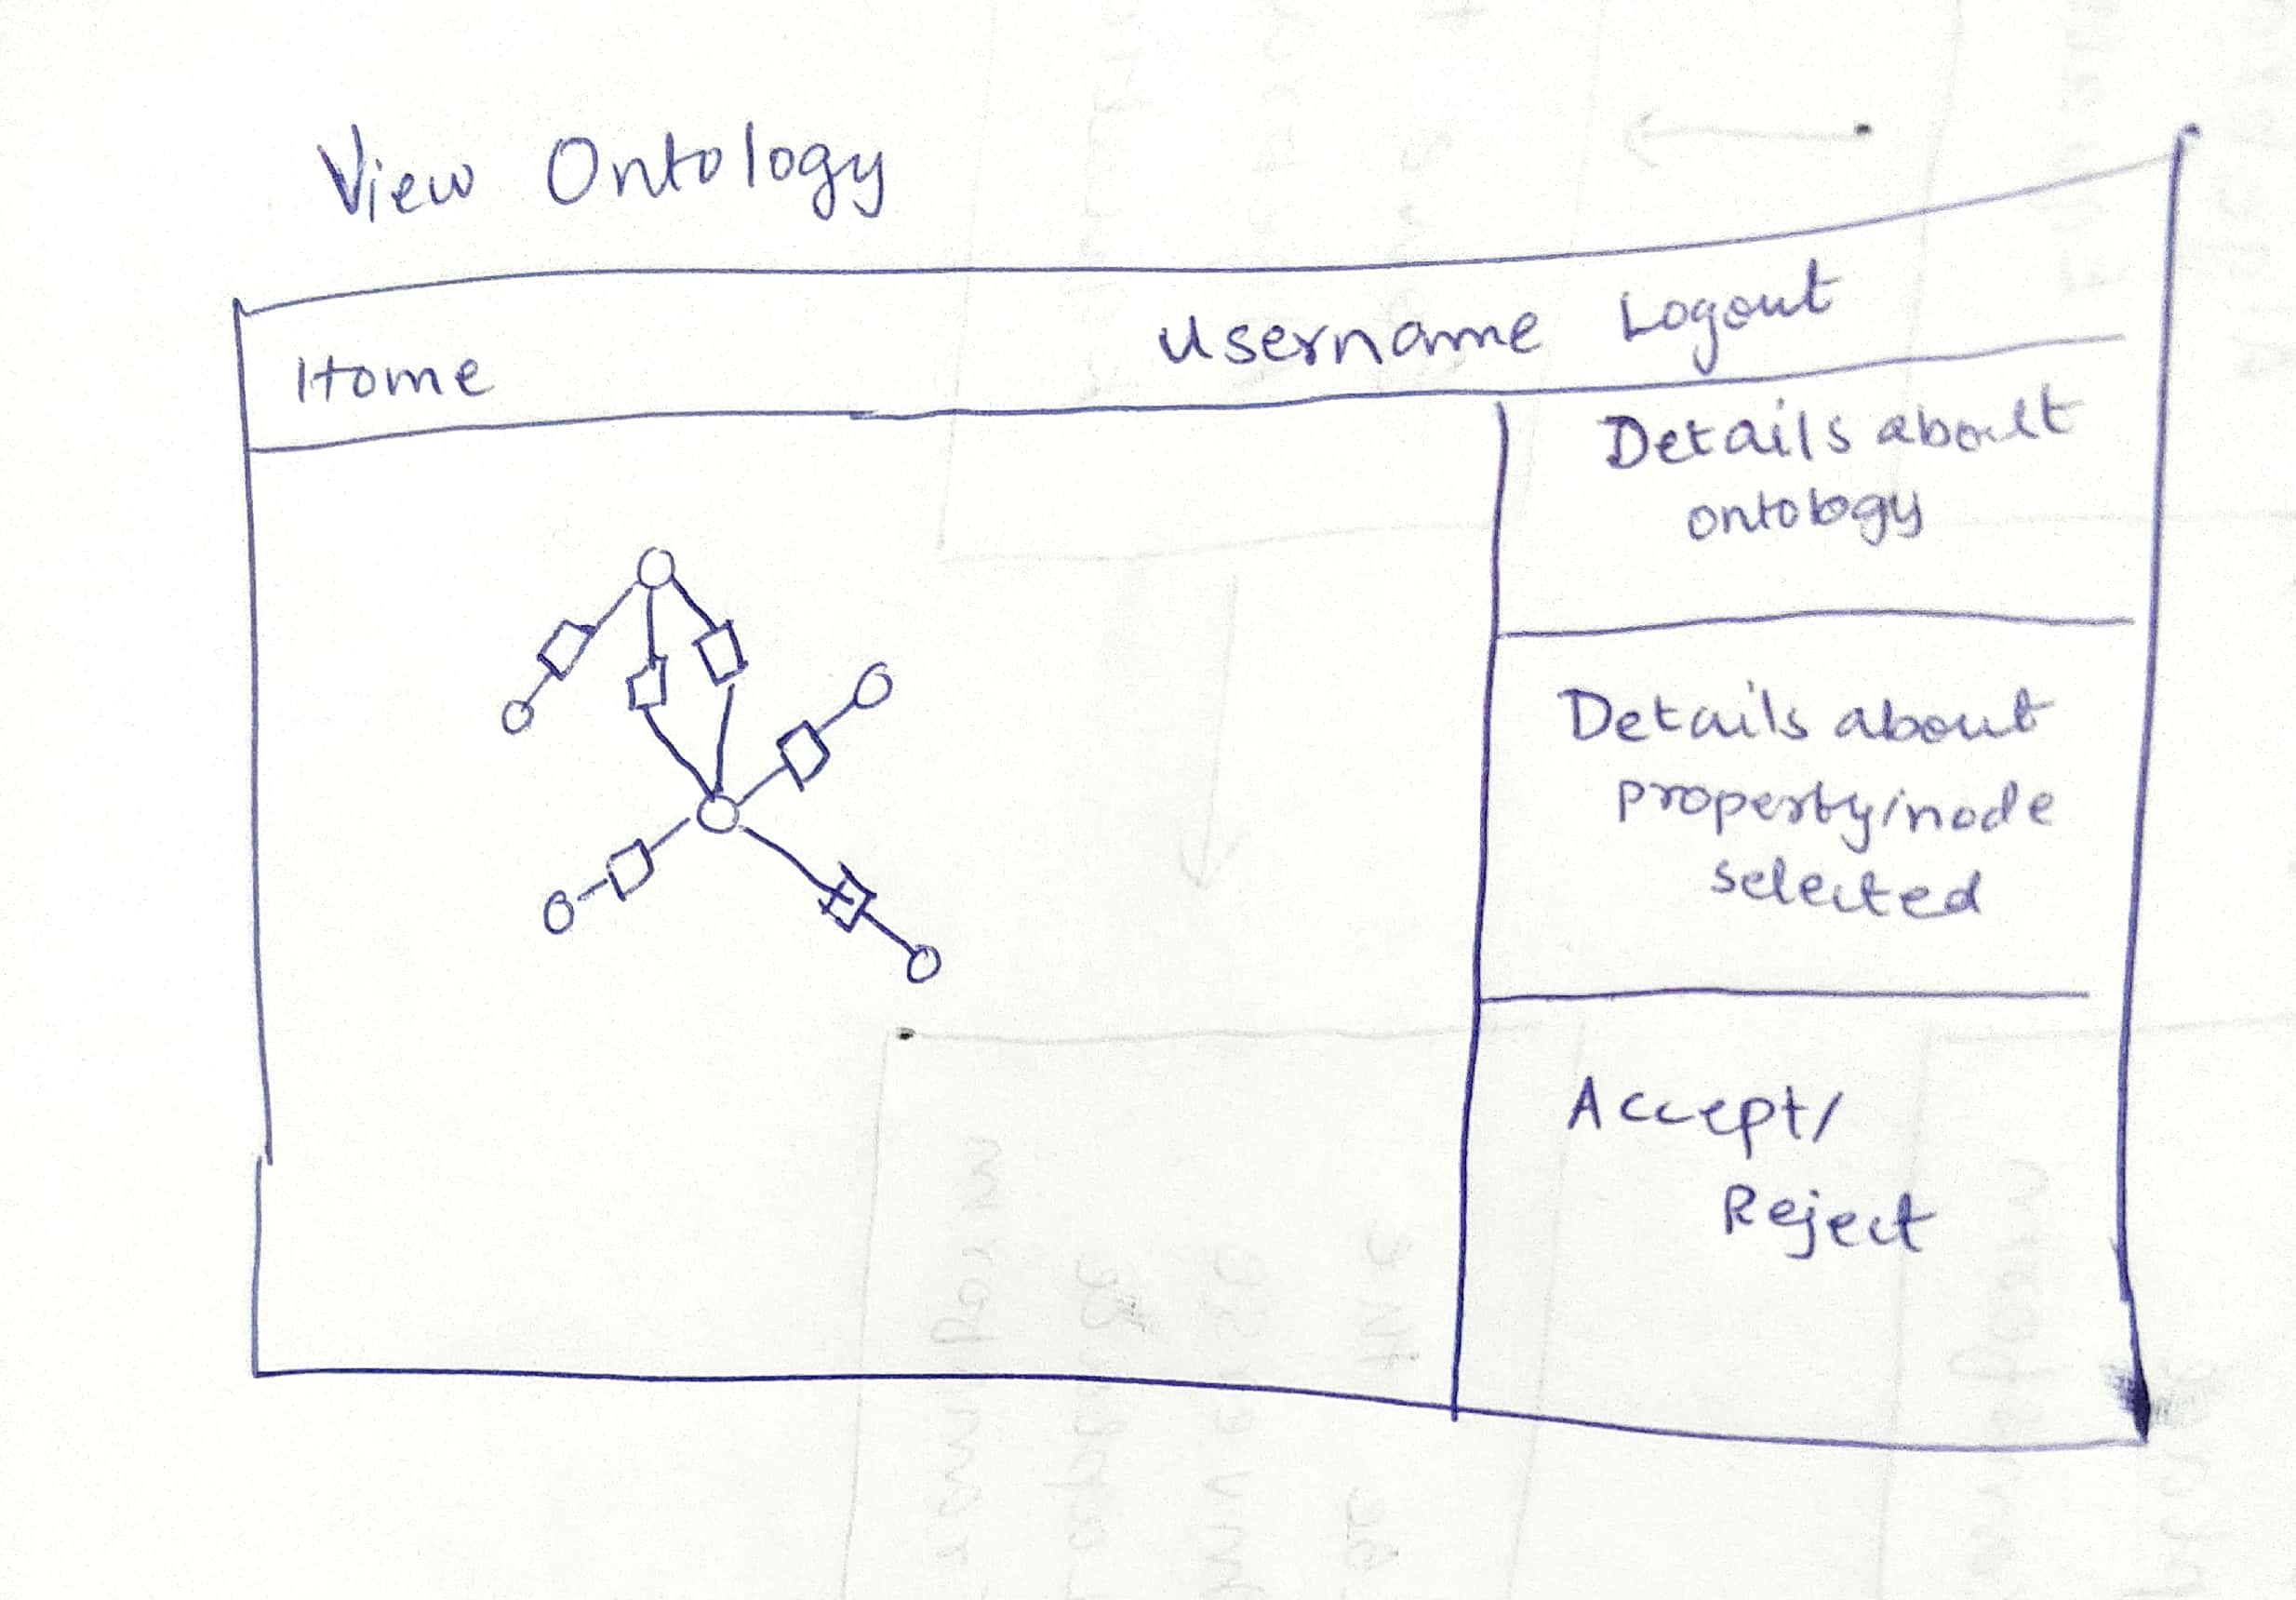 View Ontology
Home Username Logout
Details about
ontology
Details about
property/node
selected
Accept/
Reject